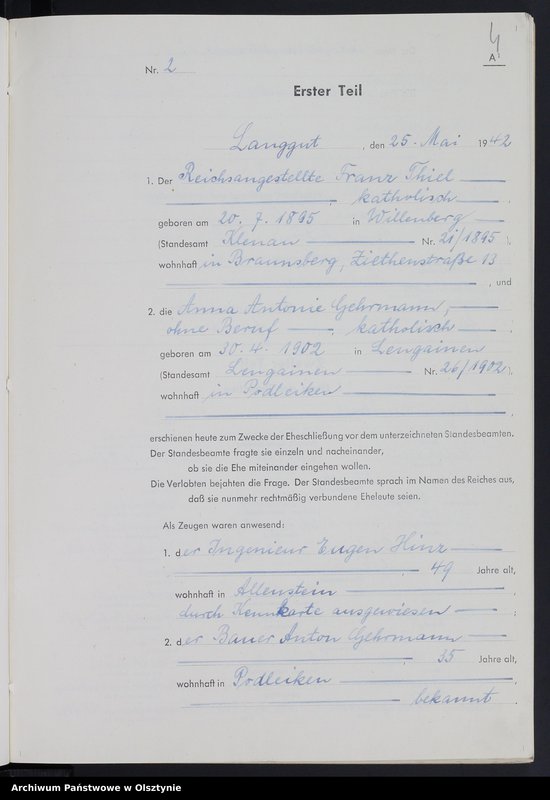 4
A
Nr. 2
Erster Teil
Langgut, den 25. Mai 1942
1. Der Reichsangestellte Franz Thiel
, katholisch,
geboren am 20. 7. 1895 in Willenberg
(Standesamt Klenau Nr. 21/1895),
wohnhaft in Braunsberg, Ziethenstraße 13
, und
2. die Anna Antonie Gehrmann,
ohne Beruf, katholisch,
geboren am 30. 4. 1902 in Lengainen
(Standesamt Lengainen Nr. 26/1902),
wohnhaft in Podleiken
,
erschienen heute zum Zwecke der Eheschließung vor dem unterzeichneten Standesbeamten.
Der Standesbeamte fragte sie einzeln und nacheinander,
ob sie die Ehe miteinander eingehen wollen.
Die Verlobten bejahten die Frage. Der Standesbeamte sprach im Namen des Reiches aus,
daß sie nunmehr rechtmäßig verbundene Eheleute seien.
Als Zeugen waren anwesend:
1. der Ingenieur Eugen Hinz
, 49 Jahre alt,
wohnhaft in Allenstein,
durch Kennkarte ausgewiesen;
2. der Bauer Anton Gehrmann
, 35 Jahre alt,
wohnhaft in Podleiken,
bekannt.
Archiwum Państwowe w Olsztynie